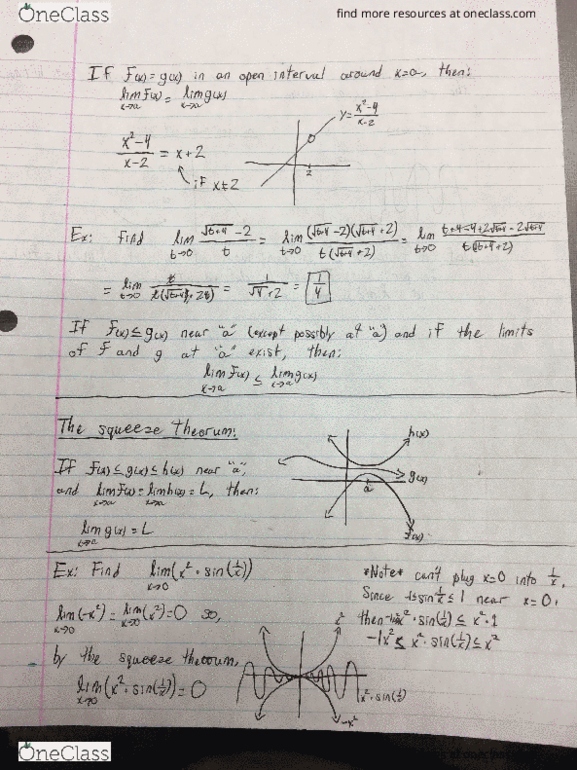 OneClass
find more resources at oneclass.com
If f(x)=g(x) in an open interval around x=a, then:
lim x→a f(x) = lim x→a g(x)
y= (x²-4)/(x-2)
(x²-4)/(x-2) = x+2
if x≠2
2
Ex: Find lim t→0 (√(t+4) -2)/t = lim t→0 (√(t+4) -2)(√(t+4) +2)/(t(√(t+4) +2)) = lim t→0 (t+4-4+2√(t+4) -2√(t+4))/(t(√(t+4)+2))
= lim t→0 t/(t(√(t+4) + 2)) = 1/(√4 +2) = 1/4
If f(x)≤g(x) near "a" (except possibly at "a") and if the limits
of f and g at "a" exist, then:
lim x→a f(x) ≤ lim x→a g(x)
The squeeze theorum:
h(x)
If f(x)≤g(x)≤h(x) near "a",
g(x)
and lim x→a f(x)=lim x→a h(x)=L, then:
a
lim x→a g(x)=L
f(x)
Ex: Find lim x→0 (x²·sin(1/x))
*Note* can't plug x=0 into 1/x.
Since -1≤sin 1/x ≤1 near x=0,
lim x→0 (-x²)=lim x→0 (x²)=0 so,
x²
then -1·x² ≤ x²·sin(1/x) ≤ x²·1
-1x² ≤ x²·sin(1/x) ≤ x²
by the squeeze theorum,
lim x→0 (x²·sin(1/x))=0
x²·sin(1/x)
-x²
OneClass